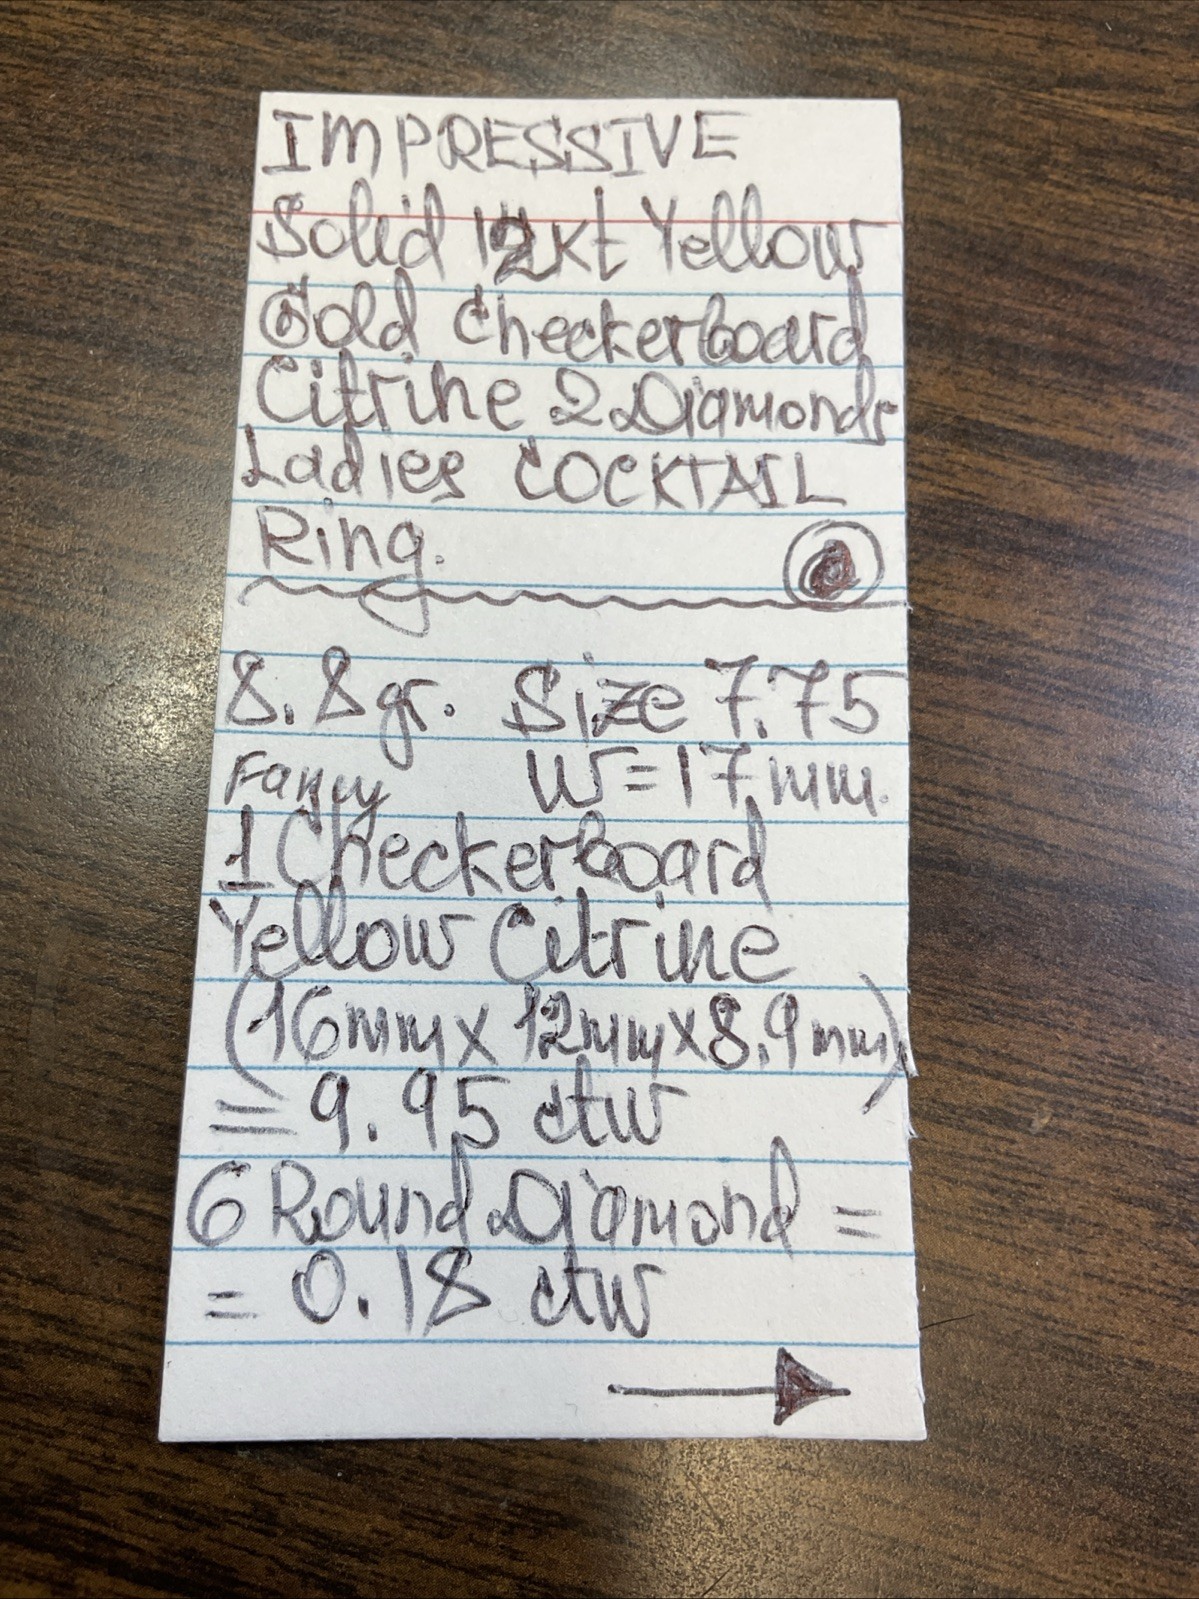 IMPRESSIVE
Solid 12kt Yellow
Gold Checkerboard
Citrine 2 Diamonds
Ladies COCKTAIL
Ring.
8.8gr. Size 7.75
Fancy W=17mm.
1 Checkerboard
Yellow Citrine
(16mm x 12mm x 8.9mm)
= 9.95 ctw
6 Round Diamond =
= 0.18 ctw